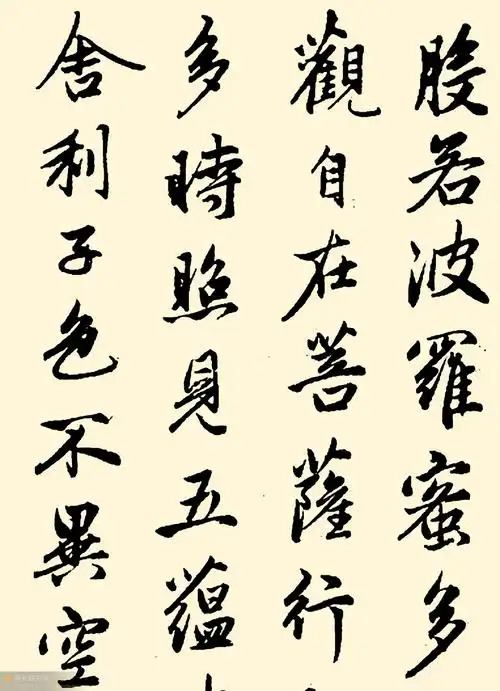 般若波羅蜜多
觀自在菩薩行
多時照見五蘊
舍利子色不異空